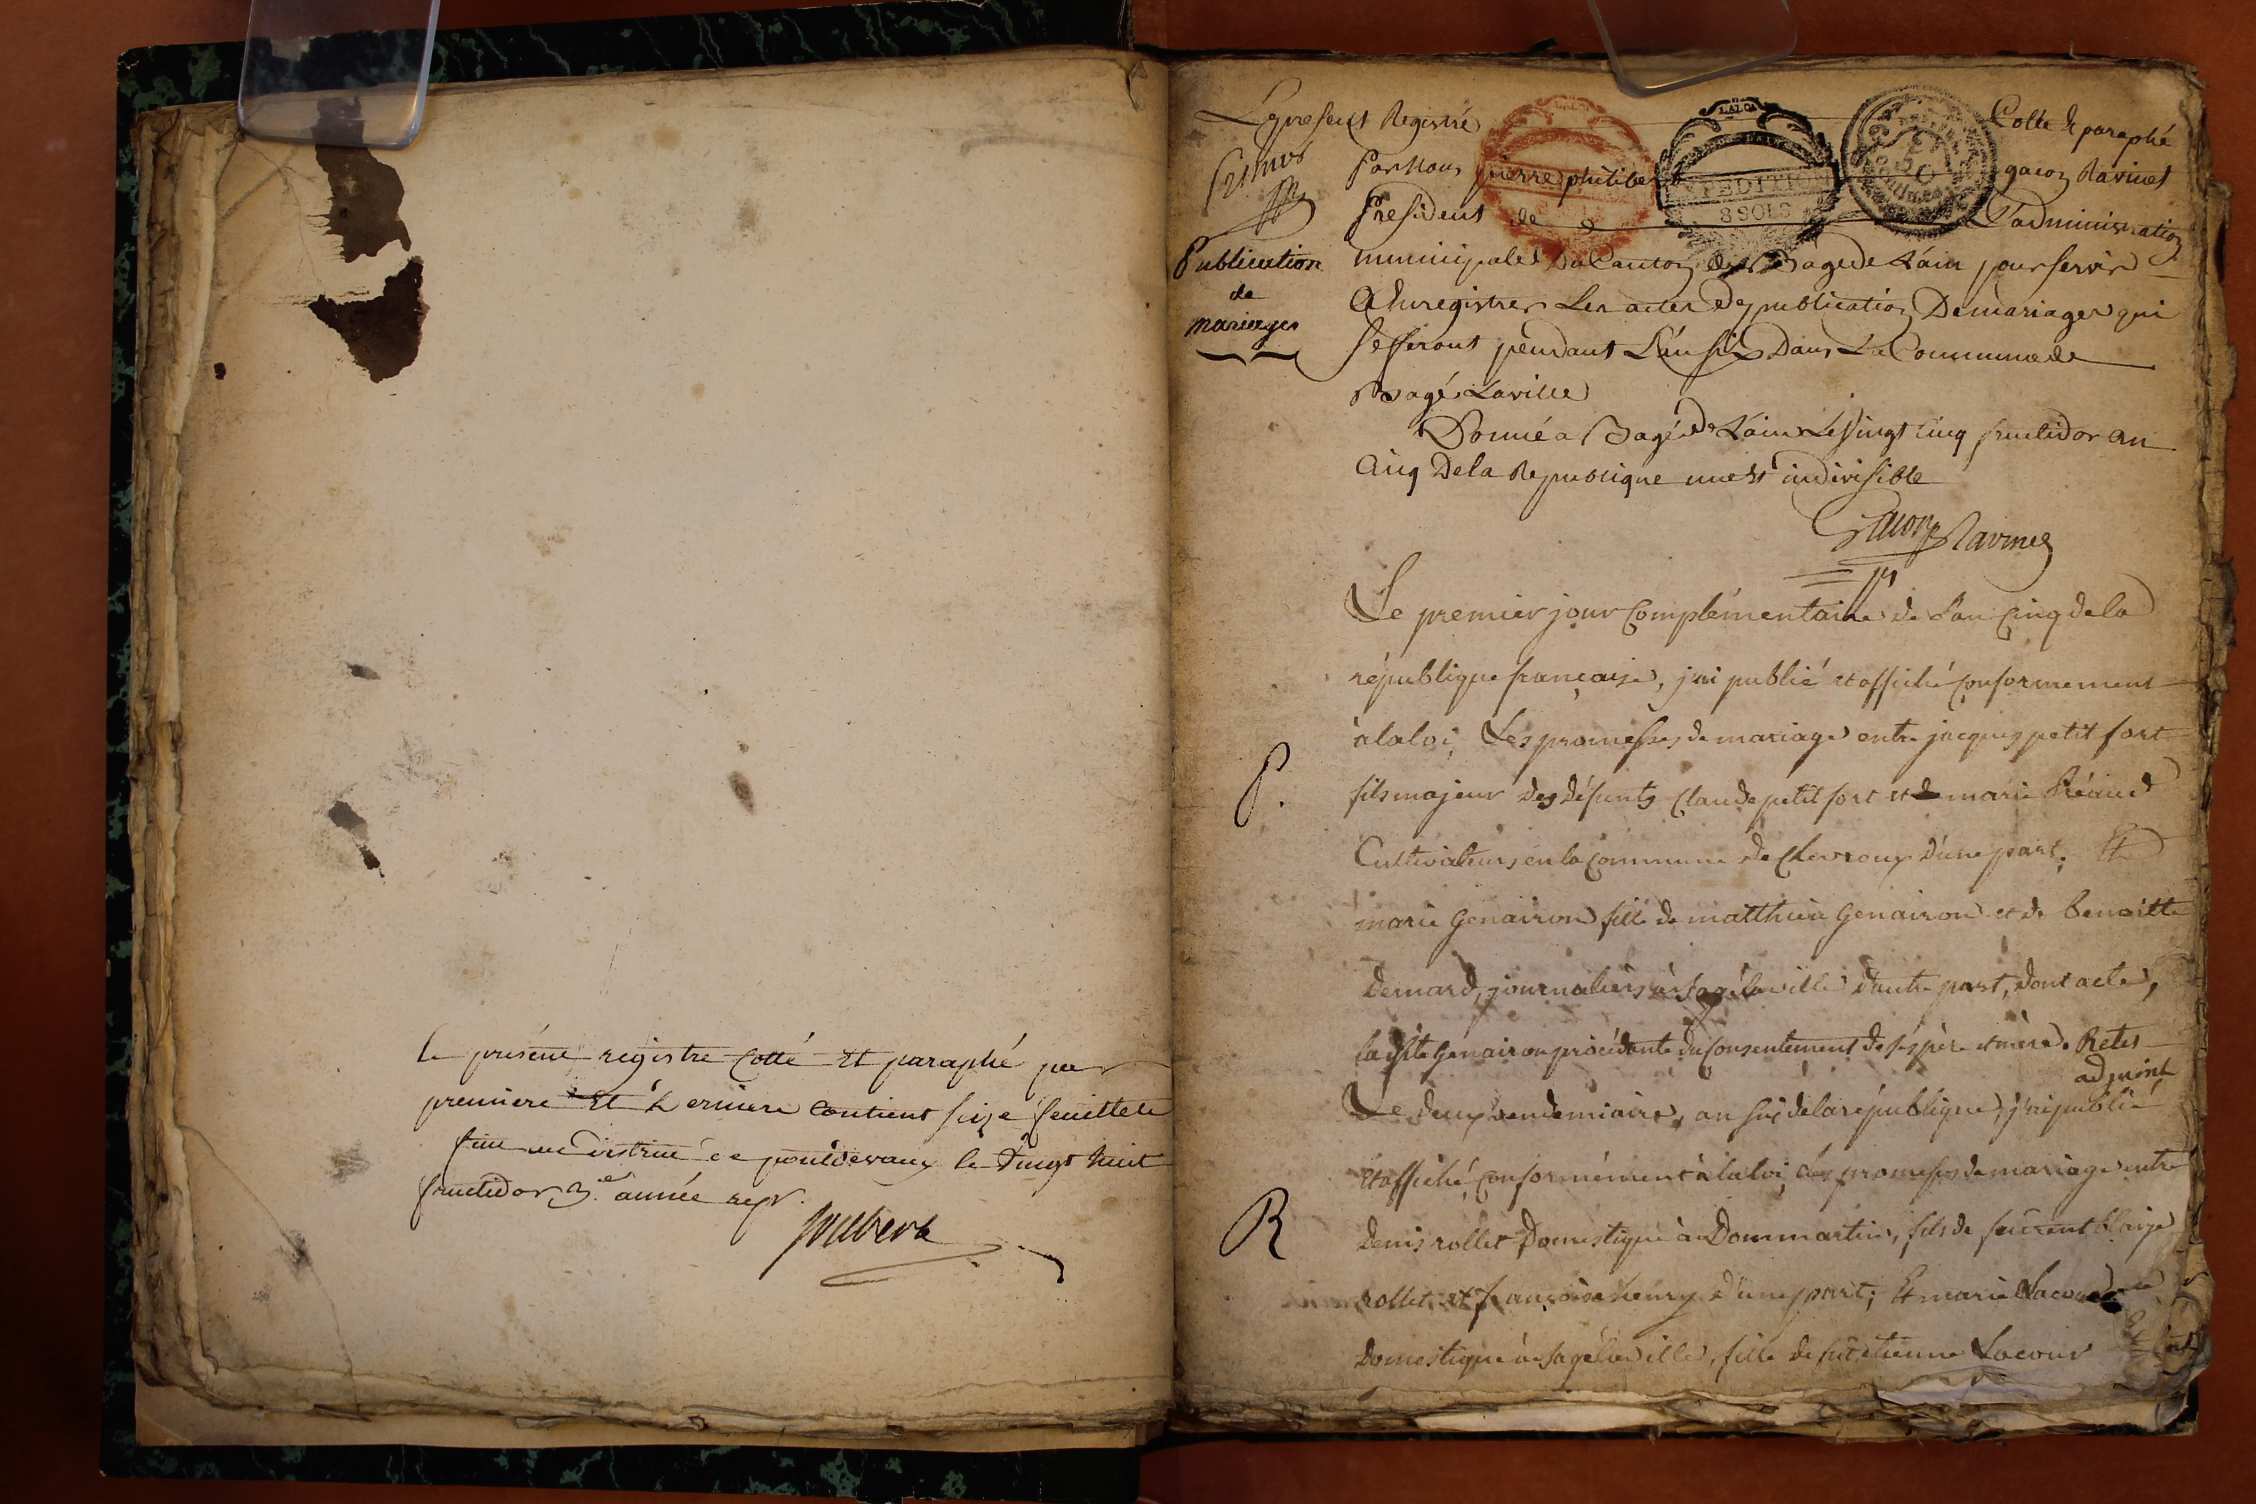 le présent registre cotté et paraphé par
premiere et derniere contient seize feuillets
fait au district de pontdevaux le vingt huit
fructidor 3.e année rep.
Le present Registre Cotté & paraphé
Par Nous pierre philibert gacon Ravinet
President de L'administration
municipale Du Canton de Bagé de L'ain pour servir
A Enregistrer Les actes de publication De mariages qui
se feront pendant L'an six Dans La Commune de
Bagé Laville
Donné a Bagé de L'ain Le Vingt cinq fructidor an
Cinq De la Republique une et indivisible
Gacon Ravinet
primus
Publication
de
mariages
EXPEDITION
8 SOLS
Le premier jour Complémentaire de l'an Cinq de la
république française, j'ai publié et affiché conformement
à la loi, Les promesses de mariage entre jacques petit fort
P.
fils majeur des défunts Claude petit fort et de marie
Cultivateurs en la Commune de Chevroux d'une part. Et
marie Genairon fille de matthieu Genairon et de benoitte
bernard, journaliers à bagé laville d'autre part, dont acte,
la dite Genairon procédante du consentement de ses père et mère. Retis
adjoint
Le deux vendemiaire, an six de la république, j'ai publié
et affiché conformément à la loi, les promesses de mariage entre
R
denis rollet Domestique à Dommartin, fils de blaize
rollet, et françoise henry d'une part; Et marie Lacour
domestique à bagé la ville, fille de fût etienne Lacour